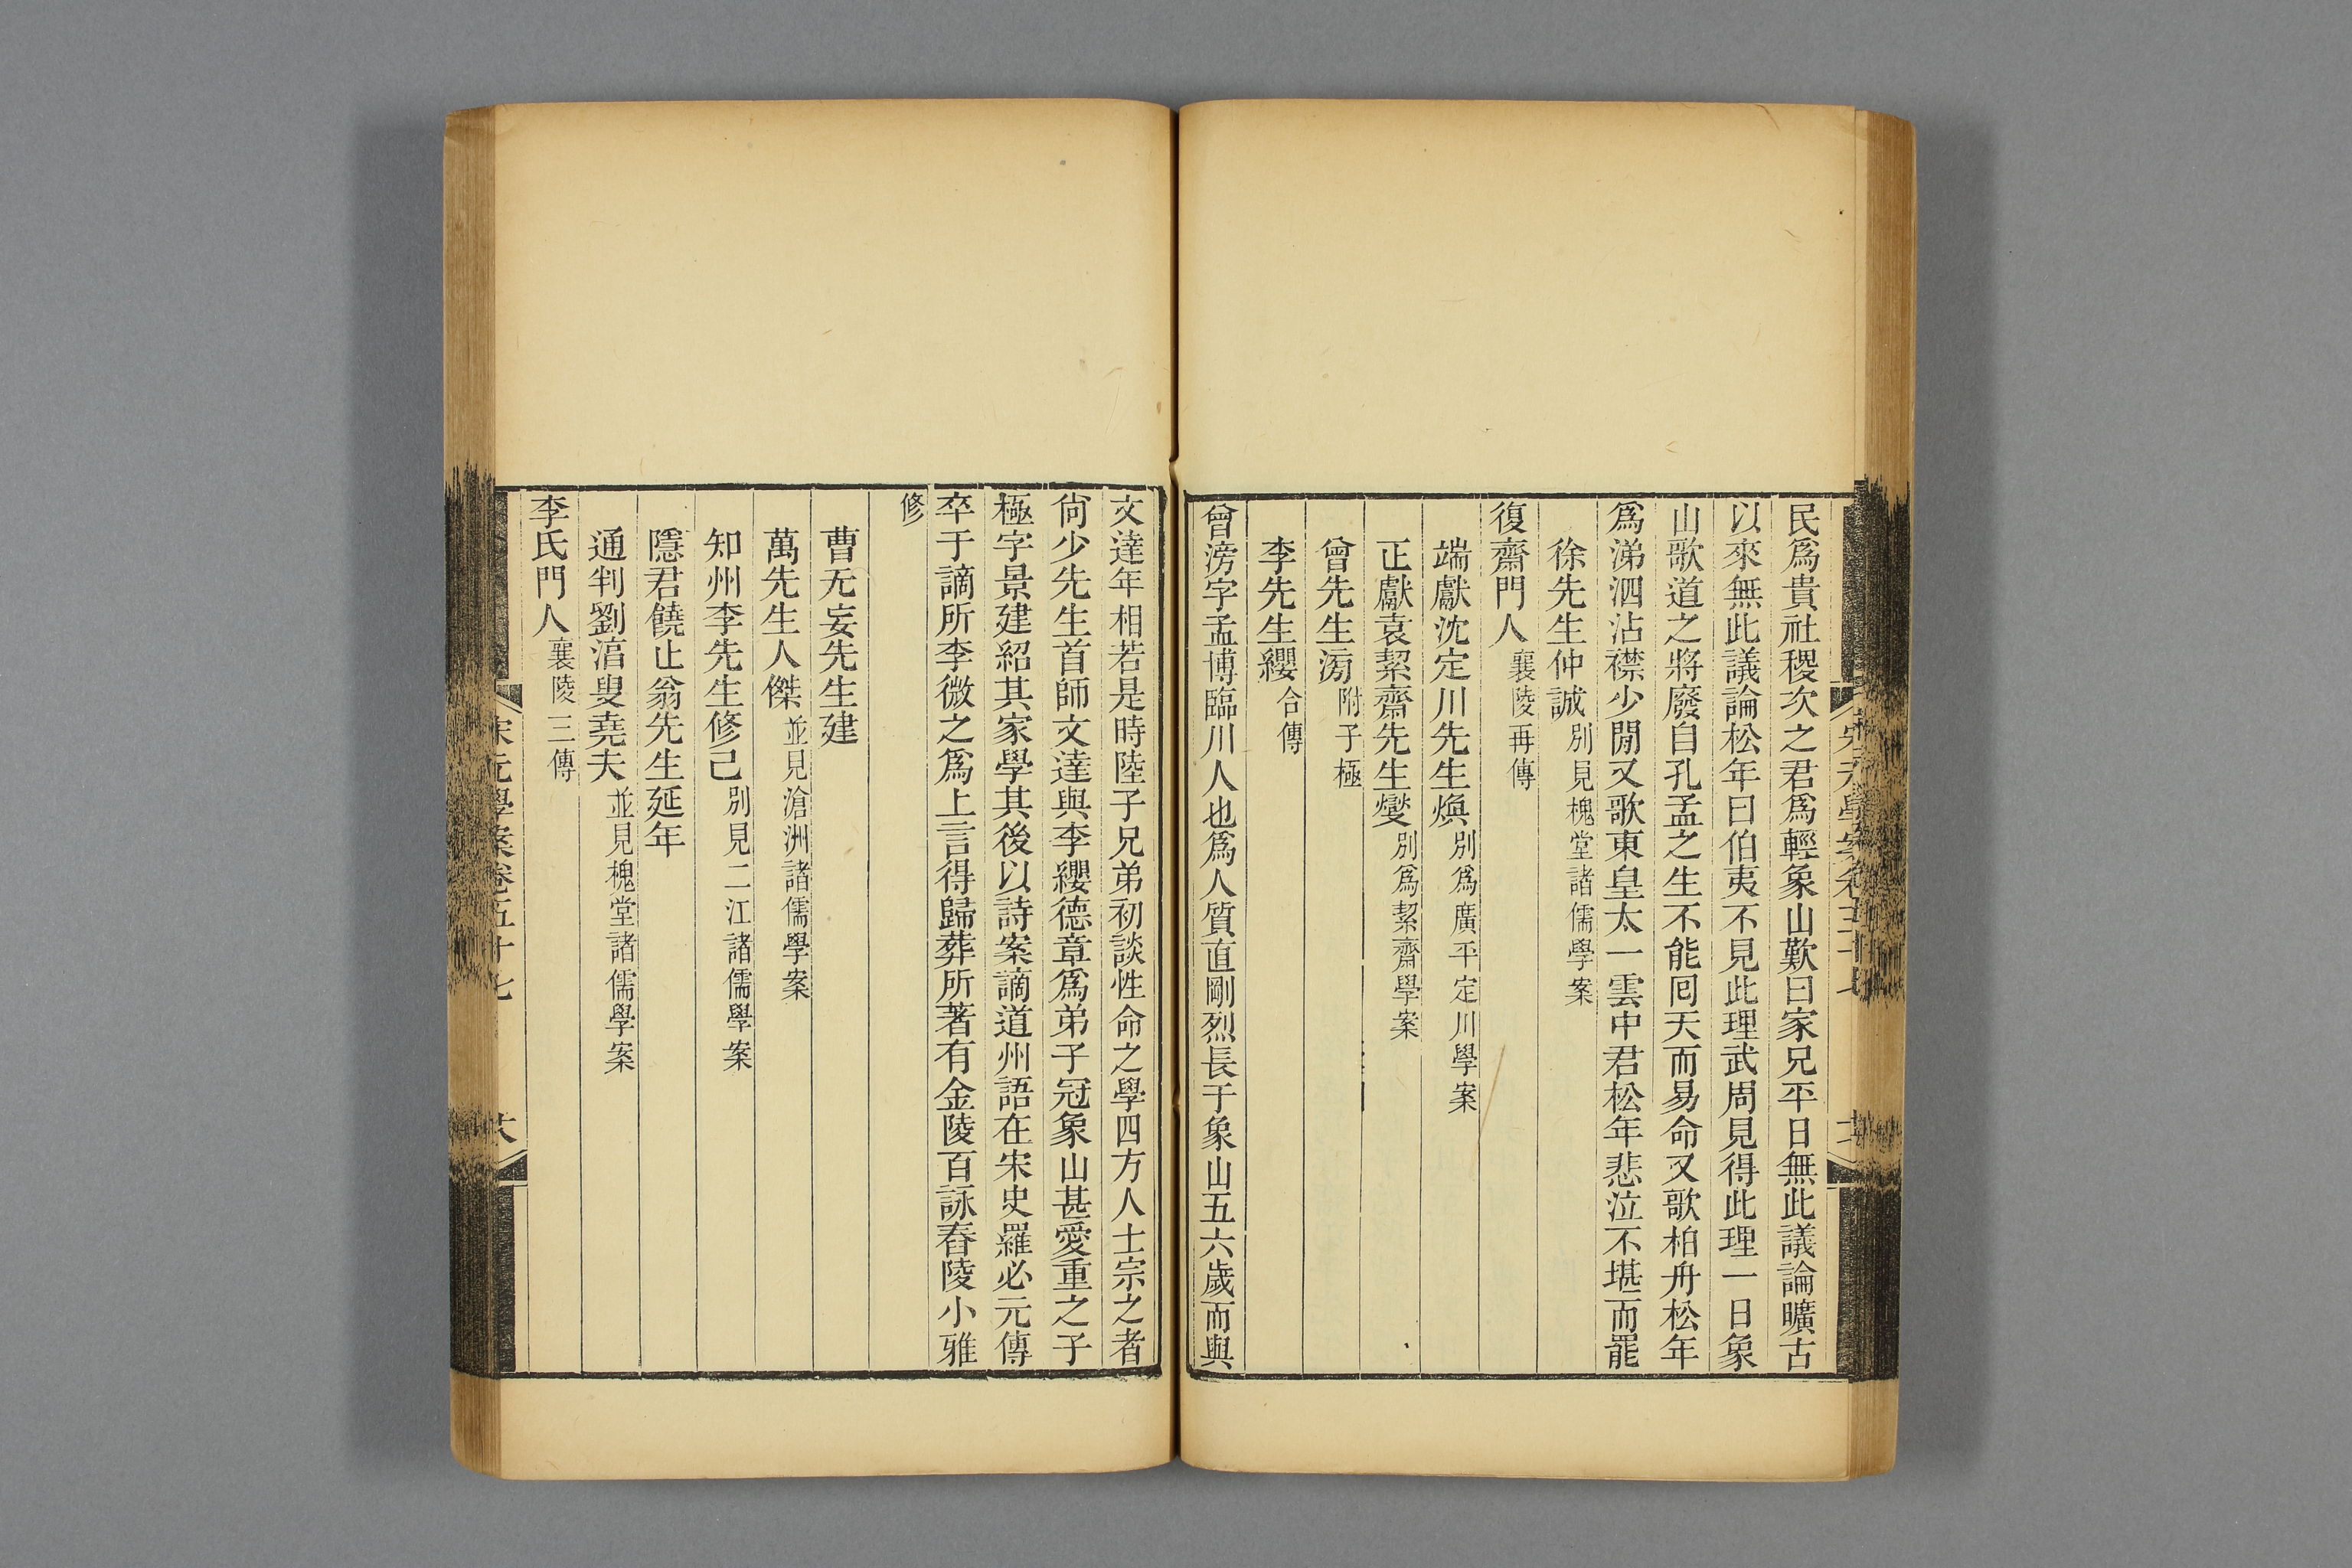 民爲貴社稷次之君爲輕象山歎曰家兄平日無此議論曠古
以來無此議論松年曰伯夷不見此理武周見得此理一日象
山歌道之將廢自孔孟之生不能囘天而易命又歌柏舟松年
爲涕泗沾襟少閒又歌東皇太一雲中君松年悲泣不堪而罷
徐先生仲誠別見槐堂諸儒學案
復齋門人襄陵再傳
端獻沈定川先生煥別爲廣平定川學案
正獻袁絜齋先生燮別爲絜齋學案
曾先生滂附子極
李先生纓合傳
曾滂字孟博臨川人也爲人質直剛烈長于象山五六歲而與
文達年相若是時陸子兄弟初談性命之學四方人士宗之者
尙少先生首師文達與李纓德章爲弟子冠象山甚愛重之子
極字景建紹其家學其後以詩案謫道州語在宋史羅必元傳
卒于謫所李微之爲上言得歸葬所著有金陵百詠舂陵小雅
修
曹无妄先生建
萬先生人傑並見滄洲諸儒學案
知州李先生修己別見二江諸儒學案
隱君饒止翁先生延年
通判劉㵎叟堯夫並見槐堂諸儒學案
李氏門人襄陵三傳
宋元學案卷五十七